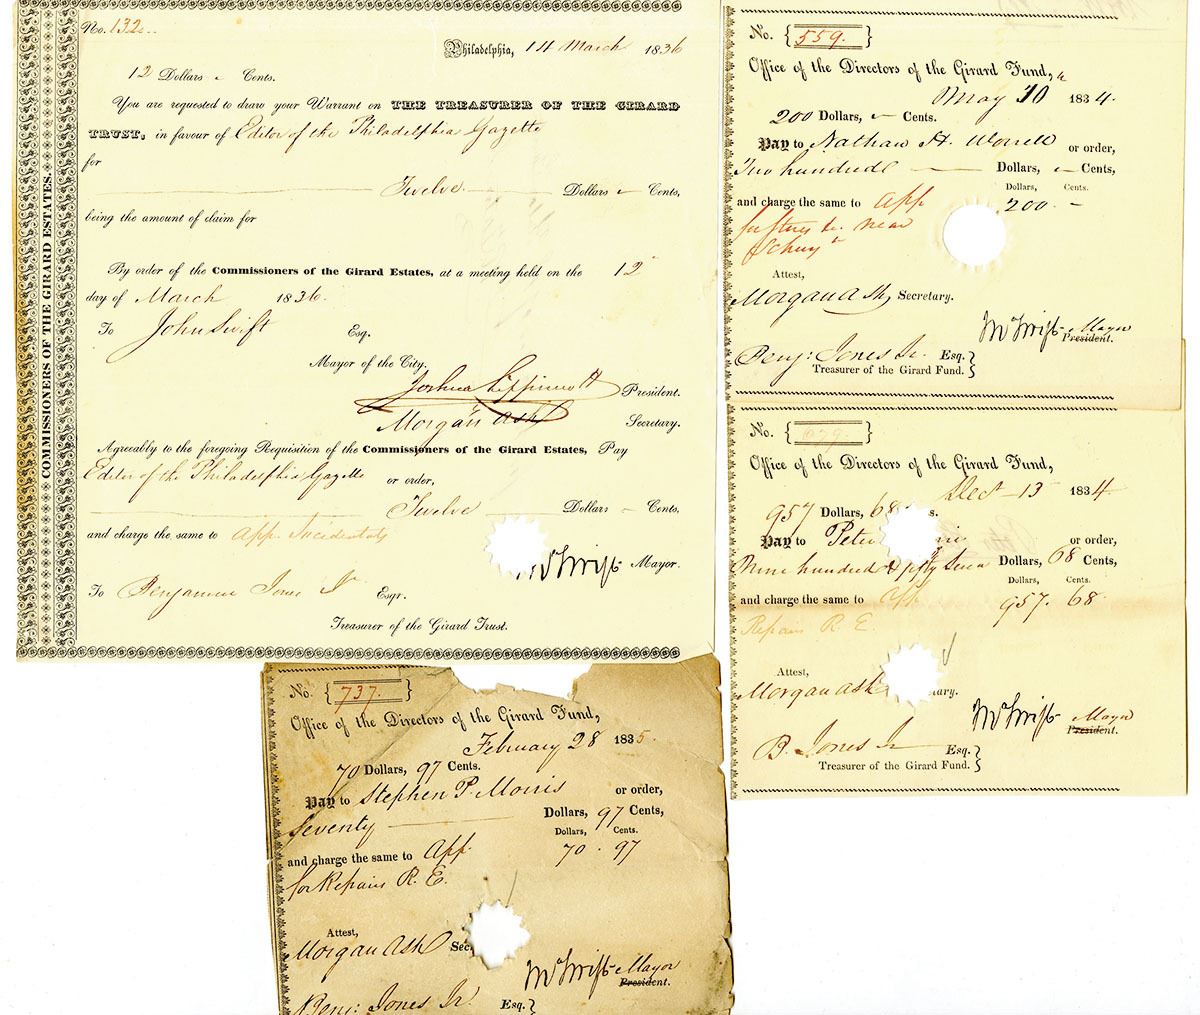 COMMISSIONERS OF THE GIRARD ESTATES.
No. 132
Philadelphia, 14 March 1836
12 Dollars Cents.
You are requested to draw your Warrant on THE TREASURER OF THE GIRARD
TRUST, in favour of Editor of the Philadelphia Gazette
for
Twelve Dollars Cents,
being the amount of claim for
By order of the Commissioners of the Girard Estates, at a meeting held on the 12
day of March 1836.
To John Swift Esq.
Mayor of the City.
Joshua Lippincott President.
Morgan Ash Secretary.
Agreeably to the foregoing Requisition of the Commissioners of the Girard Estates, Pay
Editor of the Philadelphia Gazette or order,
Twelve Dollars Cents,
and charge the same to app. Incidentals
Swift Mayor.
To Benjamin Jones Jr Esqr.
Treasurer of the Girard Trust.
No. 559.
Office of the Directors of the Girard Fund,
May 10 1834.
200 Dollars, Cents.
Pay to Nathan H. Worrell or order,
Two hundred Dollars, Cents,
Dollars, Cents.
and charge the same to app 200 -
near
Schuyl
Attest,
Morgan Ash, Secretary.
Swift Mayor
President.
Benj: Jones Jr. Esq.
Treasurer of the Girard Fund.
No.
Office of the Directors of the Girard Fund,
Dect 13 1834
957 Dollars, 68 s.
Pay to Peter or order,
Nine hundred & fifty Seven Dollars, 68 Cents,
Dollars, Cents.
and charge the same to 957. 68
Repairs R. E.
Attest,
Morgan Ash tary.
Swift Mayor
President.
B. Jones Jr Esq.
Treasurer of the Girard Fund.
No. 737.
Office of the Directors of the Girard Fund,
February 28 1835.
70 Dollars, 97 Cents.
Pay to Stephen P Morris or order,
Seventy Dollars, 97 Cents,
Dollars, Cents.
and charge the same to App 70 . 97
for Repairs R. E.
Attest,
Morgan Ash Sec
Swift Mayor
President.
Benj: Jones Jr. Esq.